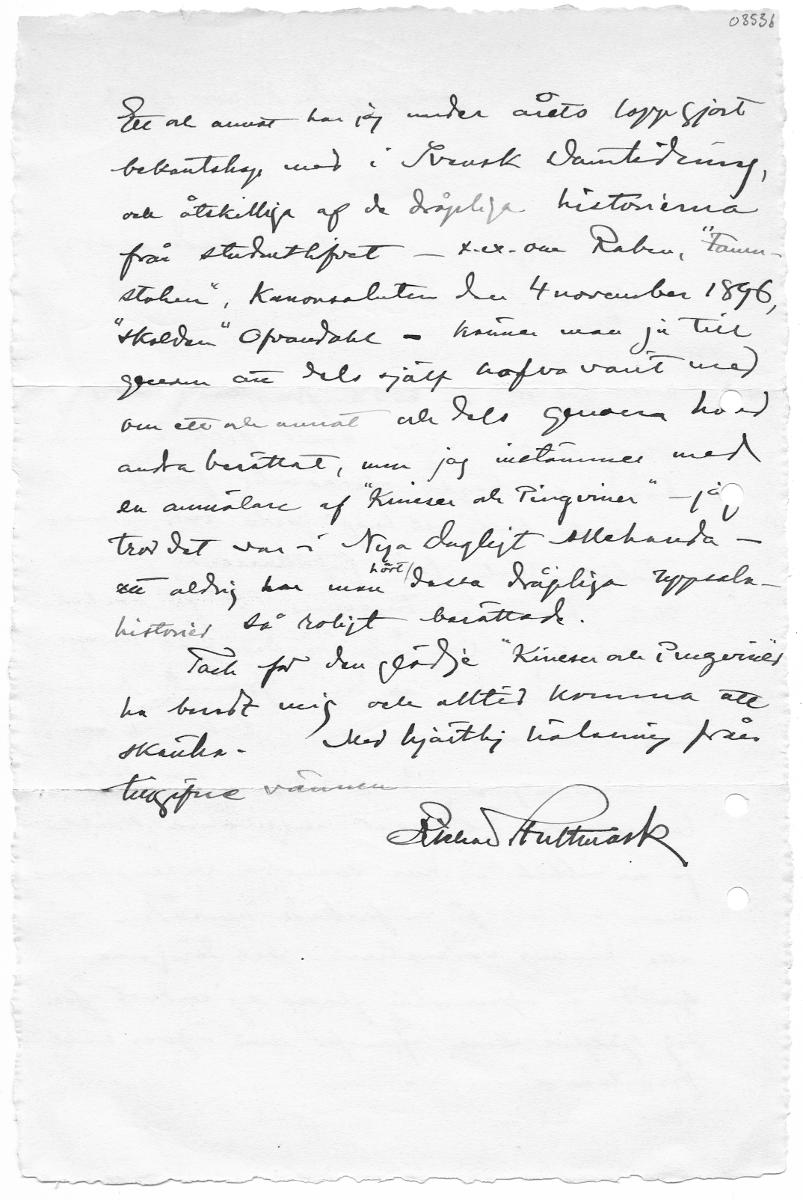 03536
Ett och annat har jag under årets lopp gjort
bekantskap med i Svensk Damtidning,
och åtskilliga af de dråpliga historierna
från studentlifvet — t.ex. om Raben, "Fanen-
stålen", Kanonsaluten den 4 november 1896,
"skalden" Ofvandahl – känner man ju till
genom att dels själf hafva varit med
om ett och annat och dels genom hvad
andra berättat, men jag instämmer med
en anmälare af "Kineser och Pingviner" – jag
tror det var i Nya Dagligt Allehanda –
att aldrig har man hört dessa dråpliga Uppsala-
historier så roligt berättade.
Tack för den glädje "Kineser och Pingviner"
ha beredt mig och alltid komma att
skänka. Med hjärtlig hälsning från
tillgifne vännen
Richard Hultmark